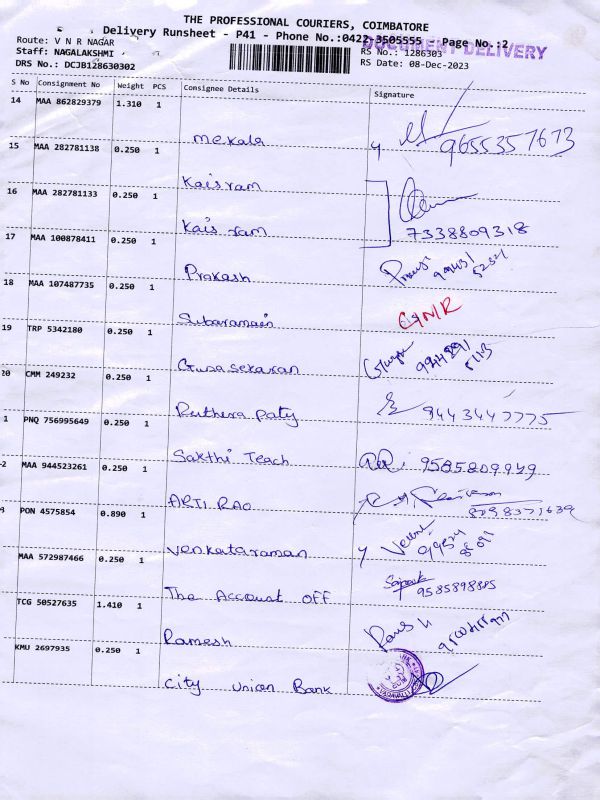 THE PROFESSIONAL COURIERS, COIMBATORE
Delivery Runsheet - P41 - Phone No.:0422-3505555 Page No.:2
DOCUMENT DELIVERY
Route: V N R NAGAR RS No.: 1286303
Staff: NAGALAKSHMI RS Date: 08-Dec-2023
DRS No.: DCJB128630302
S No Consignment No Weight PCS Consignee Details Signature
14 MAA 862829379 1.310 1
Mekala 9655357673
15 MAA 282781138 0.250 1
Kaisram
16 MAA 282781133 0.250 1
Kais ram 7338809318
17 MAA 100878411 0.250 1
Prakash
18 MAA 107487735 0.250 1
Subaramain
19 TRP 5342180 0.250 1
Gunasekaran
20 CMM 249232 0.250 1
Ruthera paty 9443447775
1 PNQ 756995649 0.250 1
Sakthi Teach 9585809949
2 MAA 944523261 0.250 1
ARTI RAO
3 PON 4575854 0.890 1
Venkataraman
MAA 572987466 0.250 1
The Account OFF 9585898885
TCG 50527635 1.410 1
Ramesh
KMU 2697935 0.250 1
City Union Bank